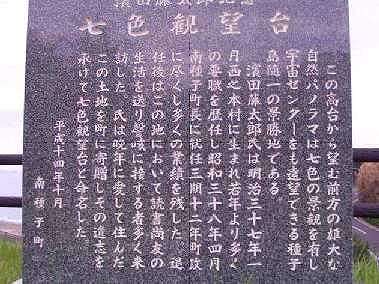 濱田藤太郎記念
七色観望台
この高台から望む前方の雄大な
自然パノラマは七色の景観を有し
宇宙センターをも遠望できる種子
島随一の景勝地である。
濱田藤太郎氏は明治三十七年一
月西之本村に生まれ若年より多く
の要職を歴任し昭和三十八年四月
南種子町長に就任三期十二年町政
に尽くし多くの業績を残した。退
任後はこの地において読書尚友の
生活を送り謦咳に接する者多く来
訪した。氏は晩年に愛して住んだ
この土地を町に寄贈しその遺志を
承けて七色観望台と命名した。
平成十四年十月
南種子町